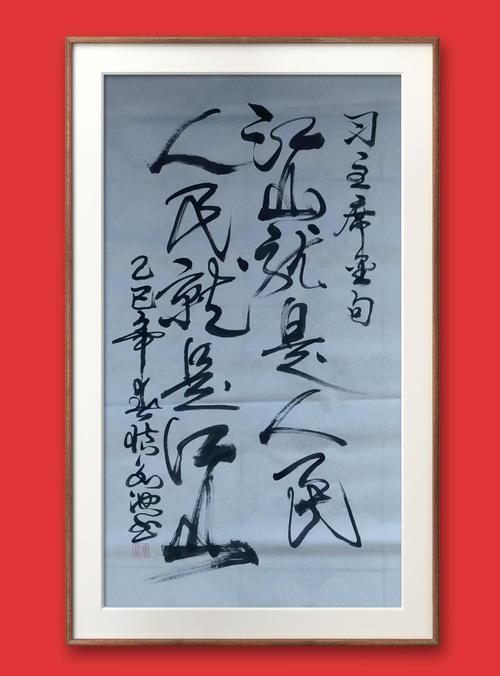 习主席金句
江山就是人民
人民就是江山
乙巳年春